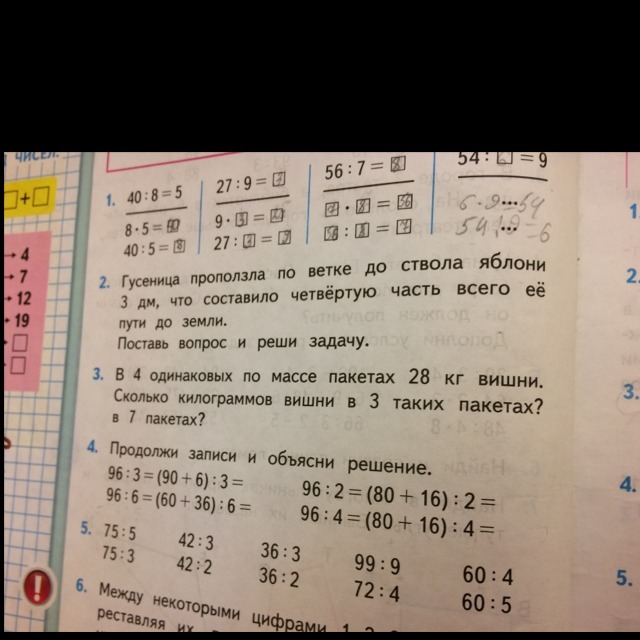 ЧИСЕЛ.
□+□
4
7
12
19
□
□
1. 40:8=5
8·5=40
40:5=8
27:9=3
9·3=27
27:3=9
56:7=8
7·8=56
56:8=7
54:6=9
6·9=54
54:9=6
2. Гусеница проползла по ветке до ствола яблони
3 дм, что составило четвёртую часть всего её
пути до земли.
Поставь вопрос и реши задачу.
3. В 4 одинаковых по массе пакетах 28 кг вишни.
Сколько килограммов вишни в 3 таких пакетах?
в 7 пакетах?
4. Продолжи записи и объясни решение.
96:3=(90+6):3= 96:2=(80+16):2=
96:6=(60+36):6= 96:4=(80+16):4=
5. 75:5 42:3 36:3 99:9 60:4
75:3 42:2 36:2 72:4 60:5
6. Между некоторыми цифрами 1
реставляя их
1.
2.
3.
4.
5.